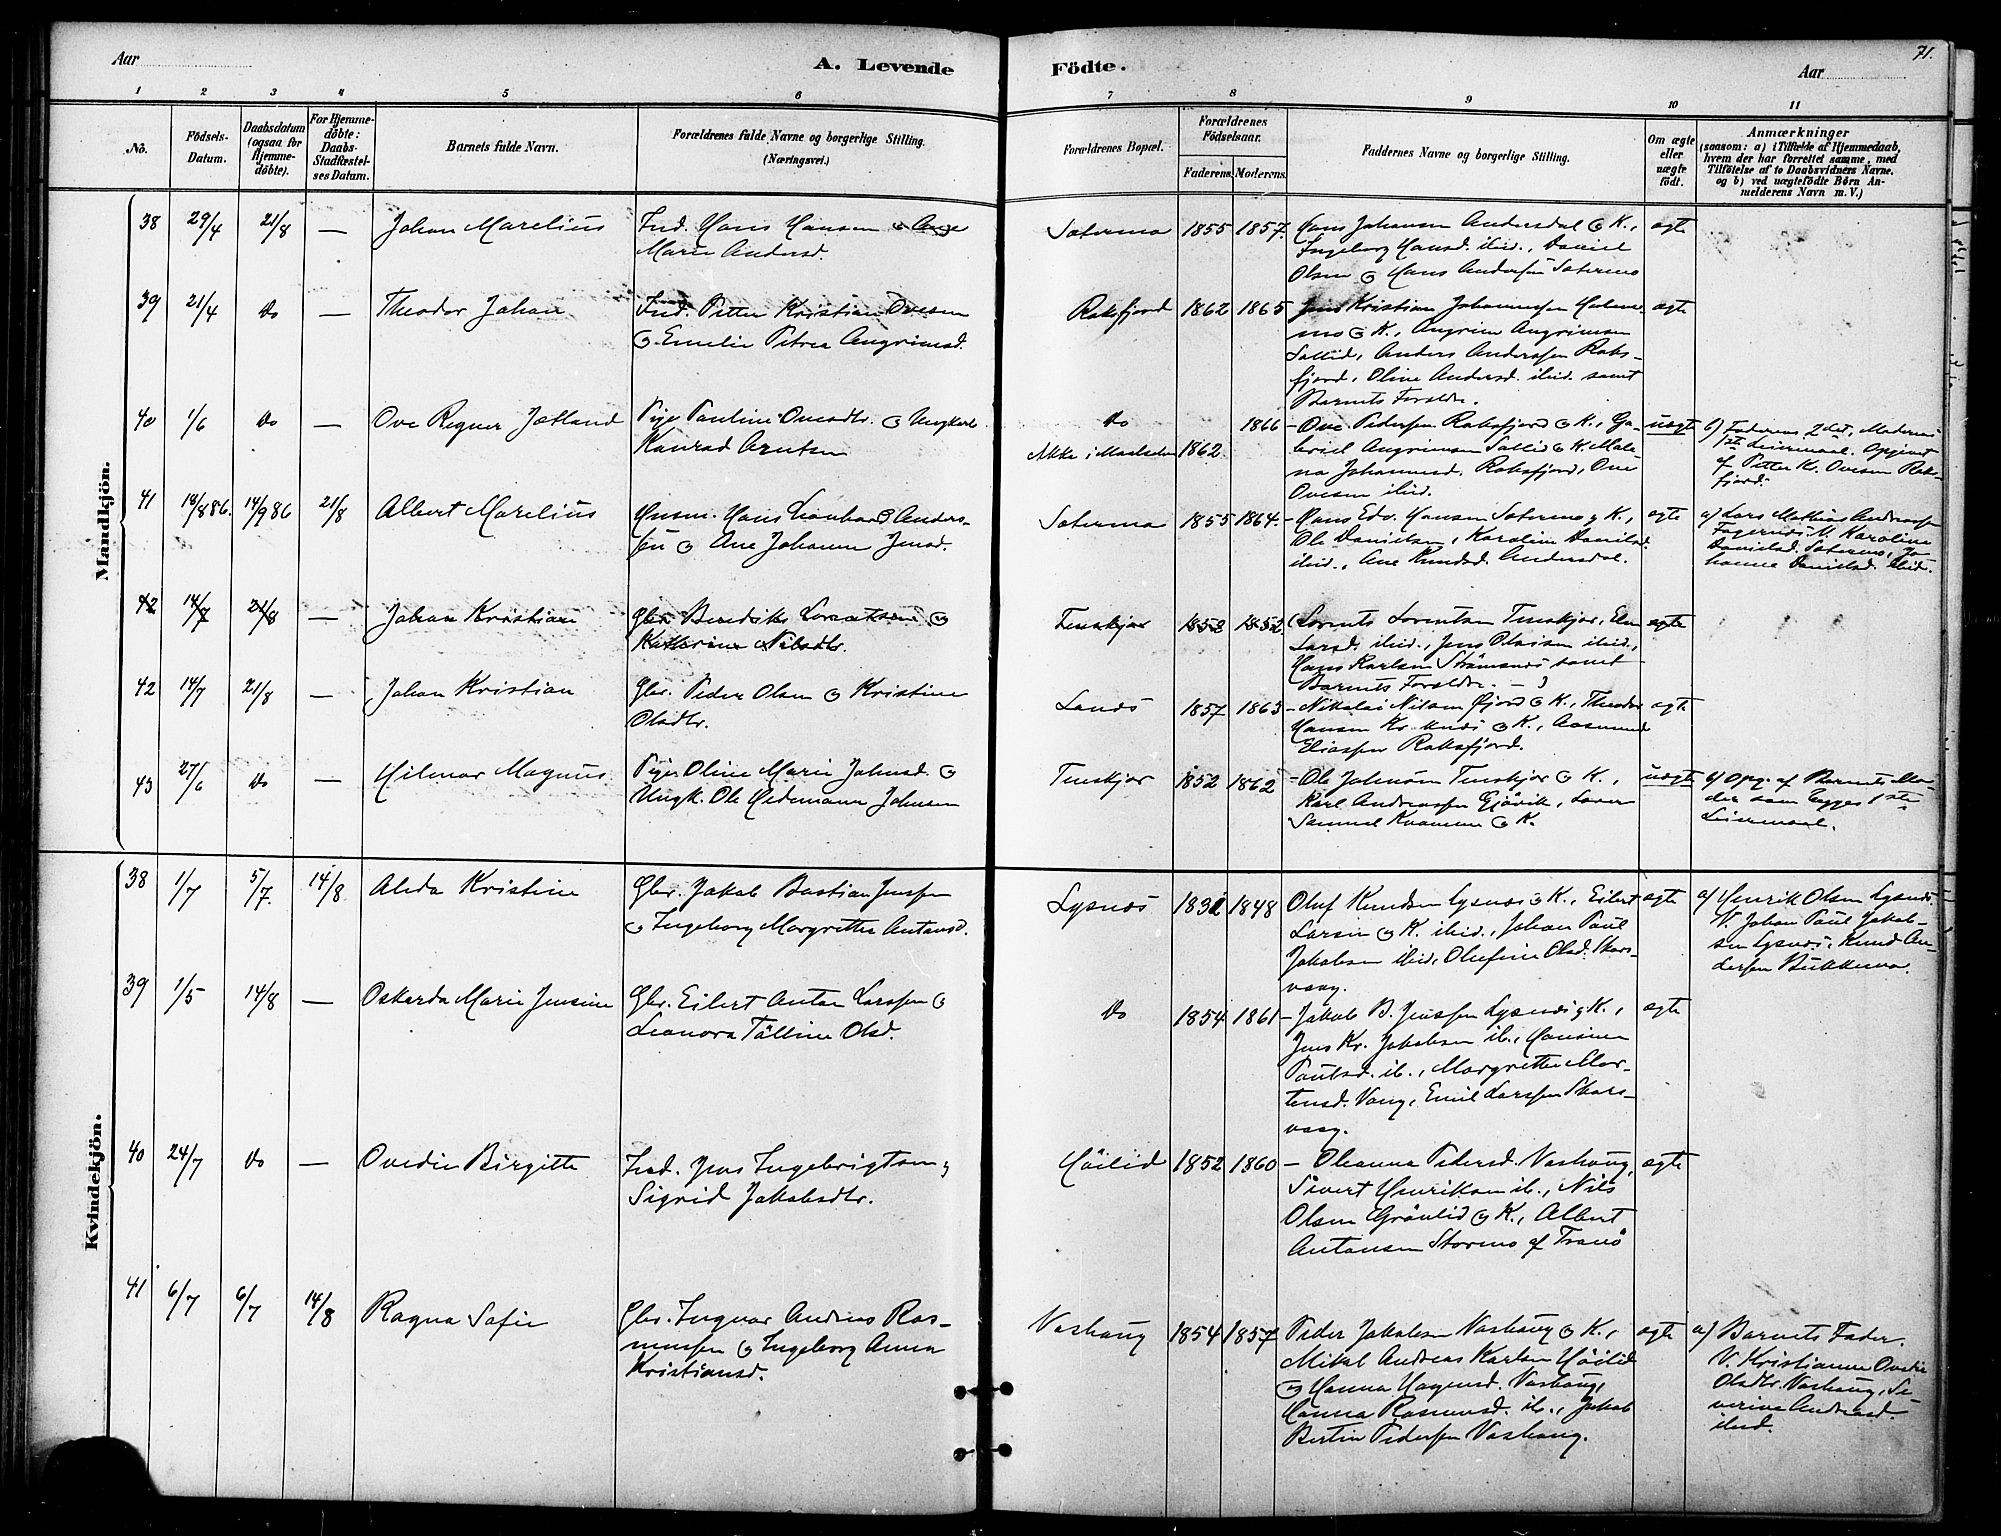 71.
Aar
A. Levende
Födte.
Aar
1 2 3 4 5 6 7 8 9 10 11
No.
Födsels-Datum.
Daabsdatum (ogsaa for Hjemme-döbte).
For Hjemme-döbte: Daabs-Stadfæstel-ses Datum.
Barnets fulde Navn.
Forældrenes fulde Navne og borgerlige Stilling.
(Næringsvei.)
Forældrenes Bopæl.
Forældrenes Födselsaar.
Faderens. Moderens.
Faddernes Navne og borgerlige Stilling.
Om ægte eller uægte födt.
Anmærkninger
(saasom: a) i Tilfælde af Hjemmedaab,
hvem der har forrettet samme, med
Tilföielse af to Daabsvidners Navne.
og b) ved uægtefödte Börn An-
melderens Navn m. V.)
Mandkjön.
38 29/4 21/8 — Johan Marelius
Ind. Hans Hansen o Ane
Marie Andersd.
Sætermo 1855 1857.
Hans Johansen Andersdal o K.,
Ingeborg Hansd. ibid., Daniel
Olsen o Hans Andersen Sætermo
ægte
39 21/4 Do — Theodor Johan
Ind. Petter Kristian Ovesen
o Emelie Petrea Angrimsd.
Raksfjord 1862 1865
Jens Kristian Johannesen Holme-
mo o K., Angrim Angrimsen
Sollid, Anders Andersen Raks-
fjord, Oline Andersd. ibid. samt
Barnets Forældre.
ægte
40 1/6 Do — Ove Regner Jætland
Pige Pauline Ovesdtr. o Ungkarl
Konrad Arntsen
Do 1866
Akke i Maalselven 1862
— Ove Pedersen Raksfjord o K., Ga-
briel Angrimsen Sollid o K. Male-
na Johannesd. Raksfjord, Ove
Ovesen ibid.
uægte
b) Faderens 2det, Moderens
1ste Leiermaal. Opgivet
af Petter K. Ovesen Rak-
fjord.
41 18/886. 14/986 21/8 Albert Marelius
Husm. Hans Leonhard Anders-
sen o Ane Johanna Jensd.
Sætermo 1855 1864.
— Hans Edv. Hansen Sætermo o K.,
Ole Danielsen, Karoline Danielsd.
ibid., Ane Knudsd. Andersdal.
ægte
a) Lars Mathias Andreassen
Fagernæs. V. Karoline
Danielsd. Sætermo, Jo-
hanna Danielsd. ibid.
42 14/7 21/8 — Johan Kristian
Gbr. Berediks Lorentsen o
Katherine Nilsdtr.
Tenskjær 1858 1852
(Lorents Lorentsen Tenskjær, Elen
Larsd. ibid., Jens Olaisen ibid.,
Hans Karlsen Strømsnæs samt
Barnets Forældre. —)
ægte
42 14/7 21/8 — Johan Kristian
Gbr. Peder Olsen o Kristine
Olsdtr.
Lanæs 1857 1863
— Nikolai Nilsen Gjord o K., Theodor
Hansen Kr næs o K., Aasmund
Eliassen Raksfjord.
ægte
43 27/6 Do — Hilmar Magnus
Pige Oline Marie Johnsd. o
Ungk. Ole Hedemann Johnsen
Tenskjær 1852 1862
— Ole Johnsen Tenskjær o K.,
Karl Andreassen Gjövik, Laver
Samuel Kvamme o K.
uægte
b) Opg. af Barnets Mo-
der som begges 1ste
Leiermaal.
Kvindekjön.
38 1/7 5/7. 14/8 Alida Kristine
Gbr. Jakob Bastian Jenssen
o Ingeborg Margrethe Antonsd.
Lysnæs 1831 1848
Oluf Knudsen Lysnæs o K., Eilert
Larsen o K. ibid., Johan Paul
Jakobsen ibid., Olufine Olsd. Skars-
vaag.
ægte
a) Henrik Olsen Lysnæs.
V. Johan Paul Jakob-
sen Lysnæs, Knud An-
dersen Bukkemo.
39 1/5 14/8 — Oskarda Marie Jensine
Gbr. Eilert Anton Larssen o
Leonora Tölline Olsd.
Do 1854 1861
— Jakob B. Jenssen Lysnæs o K.,
Jens Kr. Jakobsen ib., Hansine
Paulsd. ib., Margrethe Mor-
tensd. Vang, Emil Larssen Skars-
vaag.
ægte
40 24/7 Do — Ovedie Birgitte
Ind. Jens Ingebrigtsen o
Sigrid Jakobsdtr.
Höilid 1852 1860
— Oleanna Pedersd. Vashaug,
Sivert Henriksen ib., Nils
Olsen Grönlid o K., Albert
Antonsen Stormo af Tranö
ægte
41 6/7 6/7 14/8 Ragna Sofie
Gbr. Ingvar Andreas Ras-
mussen o Ingeborg Anna
Kristiansd.
Vashaug 1854 1857
Peder Jakobsen Vashaug o K.,
Mikal Andreas Karlsen Höilid
o Hanna Hagensd. Vashaug,
Hanna Rasmusd. ib., Jakob
Bertin Pedersen Vashaug.
ægte
a) Barnets Fader.
V. Kristianne Ovedie
Olsdtr. Vashaug, Se-
verine Andreasd.
ibid.